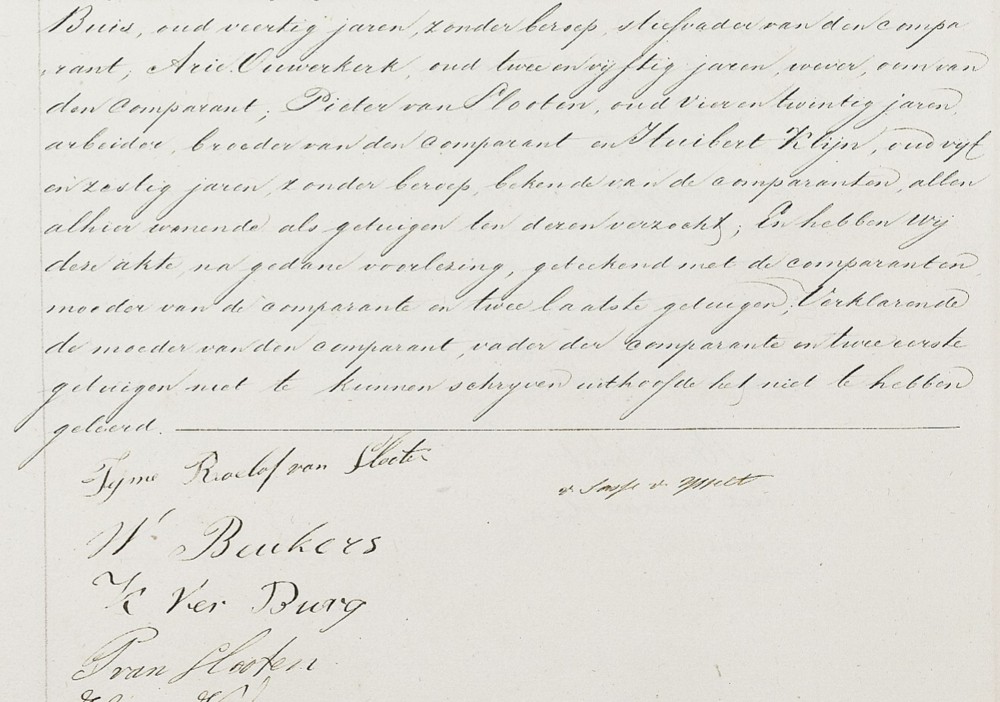 Buis, oud veertig jaren, zonder beroep, stiefvader van den compa
rant, Arie Ouwerkerk, oud twee en vyftig jaren, wever, oom van
den comparant; Pieter van Slooten, oud vier en twintig jaren,
arbeider, broeder van den comparant en Huibert Klijn, oud vyf
en zestig jaren, zonder beroep, bekende van de comparanten, allen
alhier wonende als getuigen ten dezen verzocht; En hebben wy
deze akte, na gedane voorlezing, geteekend met de comparanten,
moeder van de comparante en twee laatste getuigen; Verklarende
de moeder van den comparant, vader der comparante en twee eerste
getuigen niet te kunnen schryven uithoofde het niet te hebben
geleerd.
Tyme Roelof van Slooten
v Sasse v. Ysselt
W Beukers
K Ver Burg
P van Slooten